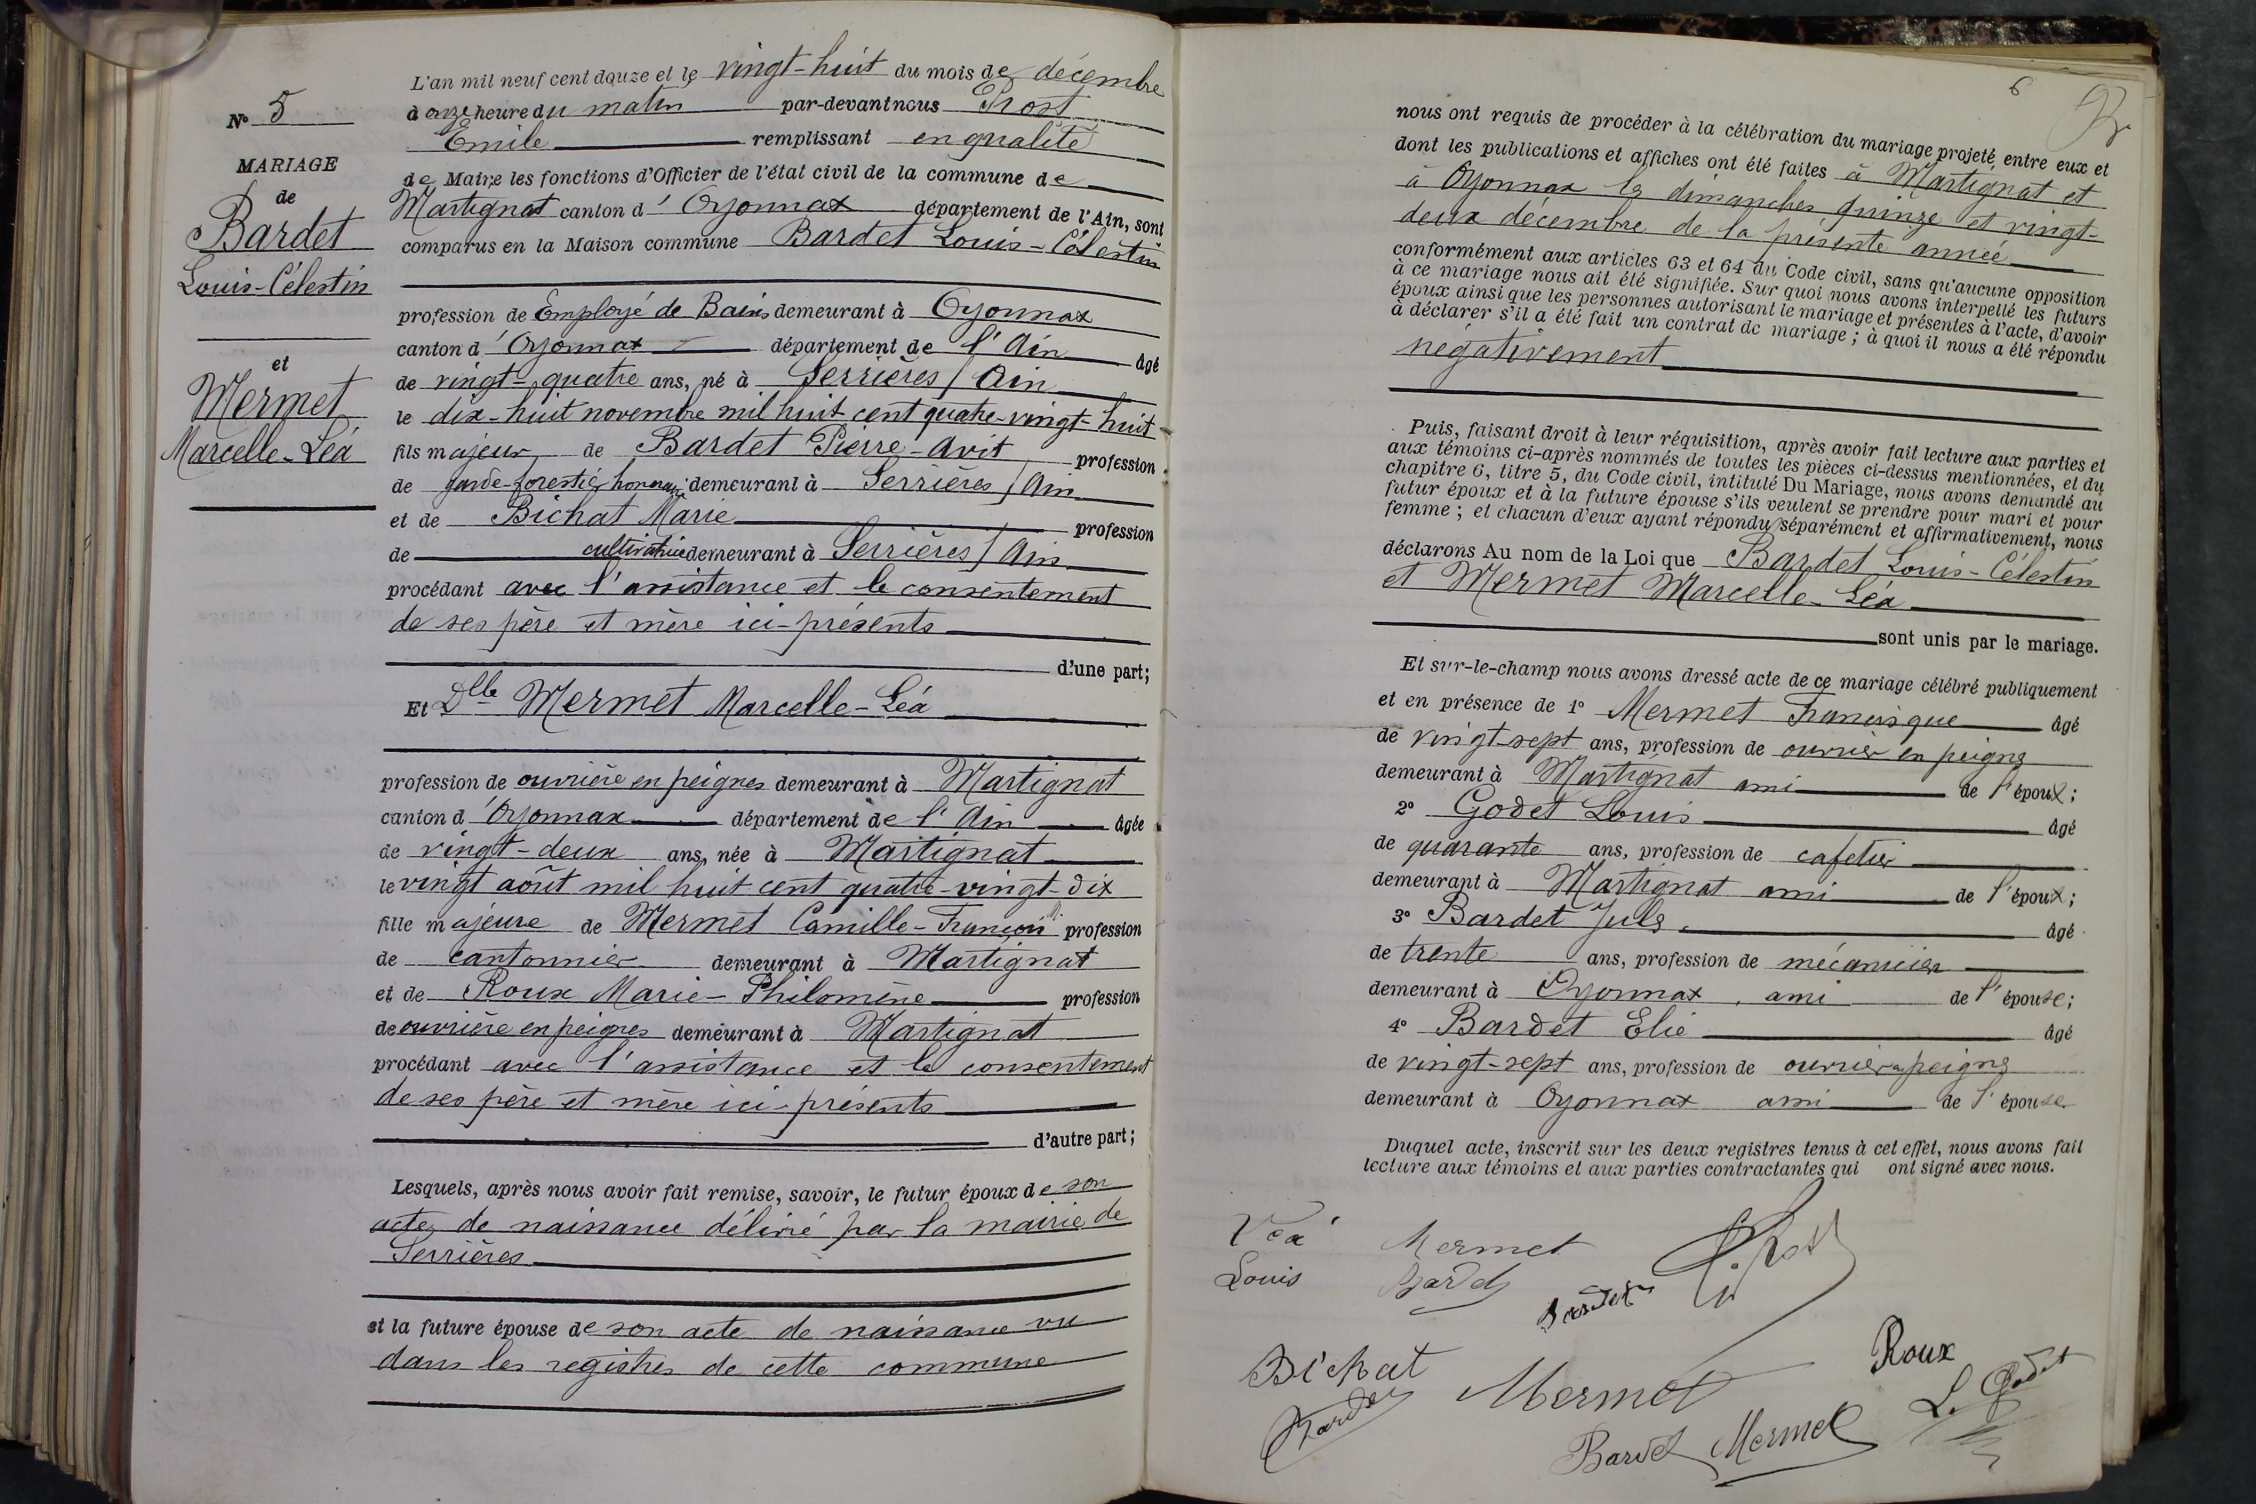 N° 5
MARIAGE
de
Bardet
Louis-Célestin
et
Mermet
Marcelle-Léa
L'an mil neuf cent douze et le vingt-huit du mois de décembre
à onze heure du matin par-devant nous Prost
Emile remplissant en qualité
de Maire les fonctions d'Officier de l'état civil de la commune de
Martignat canton d'Oyonnax département de l'Ain, sont
comparus en la Maison commune Bardet Louis-Célestin
profession de Employé de Bains demeurant à Oyonnax
canton d'Oyonnax département de l'Ain âgé
de vingt-quatre ans, né à Serrières / Ain
le dix-huit novembre mil huit cent quatre-vingt-huit
fils majeur de Bardet Pierre-Avit profession
de garde-forestier honoraire demeurant à Serrières / Ain
et de Bichat Marie profession
de cultivatrice demeurant à Serrières / Ain
procédant avec l'assistance et le consentement
de ses père et mère ici-présents
d'une part;
Et Dlle Mermet Marcelle-Léa
profession de ouvrière en peignes demeurant à Martignat
canton d'Oyonnax département de l'Ain âgée
de vingt-deux ans, née à Martignat
le vingt août mil huit cent quatre-vingt-dix
fille majeure de Mermet Camille-François profession
de cantonnier demeurant à Martignat
et de Roux Marie-Philomène profession
de ouvrière en peignes demeurant à Martignat
procédant avec l'assistance et le consentement
de ses père et mère ici-présents
d'autre part;
Lesquels, après nous avoir fait remise, savoir, le futur époux de son
acte de naissance délivré par la mairie de
Serrières
et la future épouse de son acte de naissance vu
dans les registres de cette commune
6
nous ont requis de procéder à la célébration du mariage projeté entre eux et
dont les publications et affiches ont été faites à Martignat et
à Oyonnax les dimanches quinze et vingt-
deux décembre de la présente année
conformément aux articles 63 et 64 du Code civil, sans qu'aucune opposition
à ce mariage nous ait été signifiée. Sur quoi nous avons interpellé les futurs
époux ainsi que les personnes autorisant le mariage et présentes à l'acte, d'avoir
à déclarer s'il a été fait un contrat de mariage; à quoi il nous a été répondu
négativement
Puis, faisant droit à leur réquisition, après avoir fait lecture aux parties et
aux témoins ci-après nommés de toutes les pièces ci-dessus mentionnées, et du
chapitre 6, titre 5, du Code civil, intitulé Du Mariage, nous avons demandé au
futur époux et à la future épouse s'ils veulent se prendre pour mari et pour
femme; et chacun d'eux ayant répondu séparément et affirmativement, nous
déclarons Au nom de la Loi que Bardet Louis-Célestin
et Mermet Marcelle-Léa
sont unis par le mariage.
Et sur-le-champ nous avons dressé acte de ce mariage célébré publiquement
et en présence de 1° Mermet Francisque âgé
de vingt-sept ans, profession de ouvrier en peigne
demeurant à Martignat ami de l'époux;
2° Godet Louis âgé
de quarante ans, profession de cafetier
demeurant à Martignat ami de l'époux;
3° Bardet Jules âgé
de trente ans, profession de mécanicien
demeurant à Oyonnax, ami de l'épouse;
4° Bardet Elie âgé
de vingt-sept ans, profession de ouvrier en peigne
demeurant à Oyonnax ami de l'épouse
Duquel acte, inscrit sur les deux registres tenus à cet effet, nous avons fait
lecture aux témoins et aux parties contractantes qui ont signé avec nous.
Léa Mermet
Louis Bardet
Bardet
E. Prost
Bichat
Bardet
Mermet
Roux
L. Godet
Bardet
Mermet